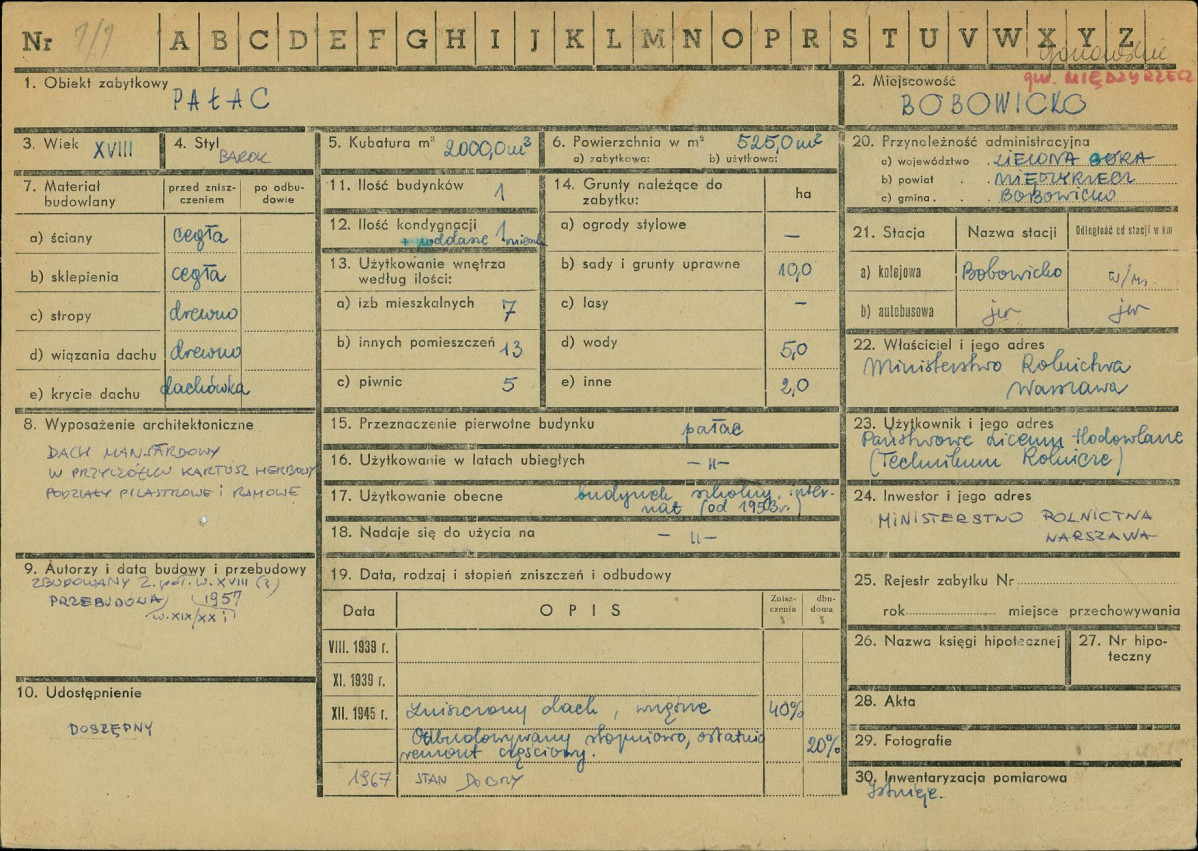 Nr 7/9 A B C D E F G H I J K L M N O P R S T U V W X Y Z
gorzowskie
gm. MIĘDZYRZECZ
1. Obiekt zabytkowy
PAŁAC
2. Miejscowość
BOBOWICKO
3. Wiek XVIII
4. Styl BAROK
5. Kubatura m³ 2000,0 m³
6. Powierzchnia w m² 525,0 m²
a) zabytkowa: b) użytkowa:
7. Materiał budowlany
przed zniszczeniem
po odbudowie
a) ściany cegła
b) sklepienia cegła
c) stropy drewno
d) wiązania dachu drewno
e) krycie dachu dachówka
8. Wyposażenie architektoniczne
DACH MANSARDOWY
W PRZYCZÓŁKU KARTUSZ HERBOWY
PODZIAŁY PILASTROWE i RAMOWE
9. Autorzy i data budowy i przebudowy
ZBUDOWANY 2. poł. w. XVIII (?)
PRZEBUDOWA 1957
w. XIX/XX i
10. Udostępnienie
DOSTĘPNY
11. Ilość budynków 1
12. Ilość kondygnacji 1
+ poddasze mieszk
13. Użytkowanie wnętrza
według ilości:
a) izb mieszkalnych 7
b) innych pomieszczeń 13
c) piwnic 5
14. Grunty należące do
zabytku: ha
a) ogrody stylowe —
b) sady i grunty uprawne 10,0
c) lasy —
d) wody 5,0
e) inne 2,0
15. Przeznaczenie pierwotne budynku pałac
16. Użytkowanie w latach ubiegłych — „ —
17. Użytkowanie obecne budynek szkolny, inter-
nat (od 1953 r.)
18. Nadaje się do użycia na — „ —
19. Data, rodzaj i stopień zniszczeń i odbudowy
Data OPIS Zniszczenia % dbudowa %
VIII. 1939 r.
XI. 1939 r.
XII. 1945 r. Zniszczony dach, wnętrze 40%
Odbudowywany stopniowo, ostatnio
remont częściowy. 20%
1967 STAN DOBRY
20. Przynależność administracyjna
a) województwo . ZIELONA GÓRA
b) powiat . . MIĘDZYRZECZ
c) gmina . . BOBOWICKO
21. Stacja Nazwa stacji Odległość od stacji w km
a) kolejowa Bobowicko w/m.
b) autobusowa jw jw
22. Właściciel i jego adres
Ministerstwo Rolnictwa
Warszawa
23. Użytkownik i jego adres
Państwowe Liceum Hodowlane
(Technikum Rolnicze)
24. Inwestor i jego adres
MINISTERSTWO ROLNICTWA
WARSZAWA
25. Rejestr zabytku Nr
rok miejsce przechowywania
26. Nazwa księgi hipotecznej
27. Nr hipo-
teczny
28. Akta
29. Fotografie
30. Inwentaryzacja pomiarowa
Istnieje.